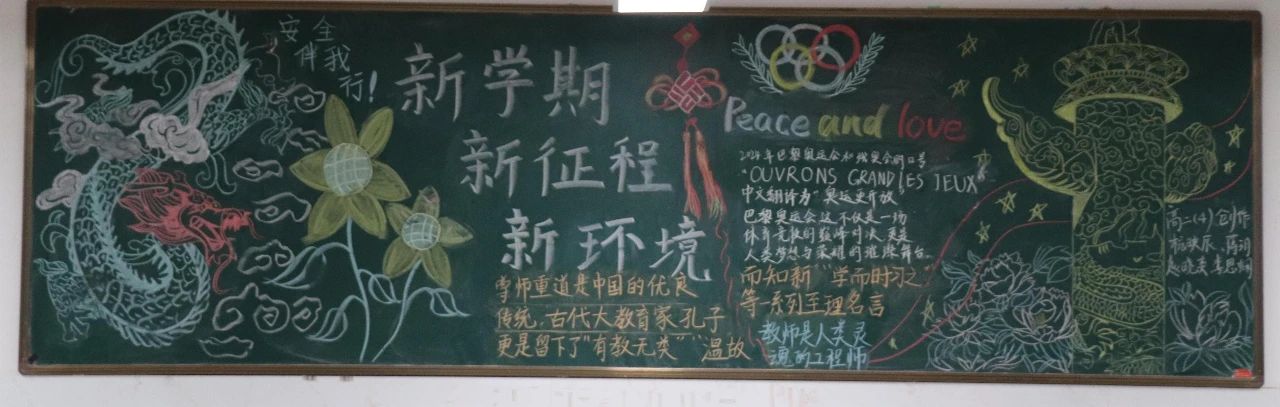 安全
伴我
行!
新学期
新征程
新环境
Peace and love
2024年巴黎奥运会和残奥会的口号
"OUVRONS GRAND LES JEUX"
中文翻译为"奥运更开放"
巴黎奥运会这不仅是一场
体育竞技的巅峰对决,更是
人类梦想与荣耀的璀璨舞台.
尊师重道是中国的优良
传统,古代大教育家孔子
更是留下了"有教无类""温故
而知新""学而时习之"
等一系列至理名言
教师是人类灵
魂的工程师
高二(4)创作